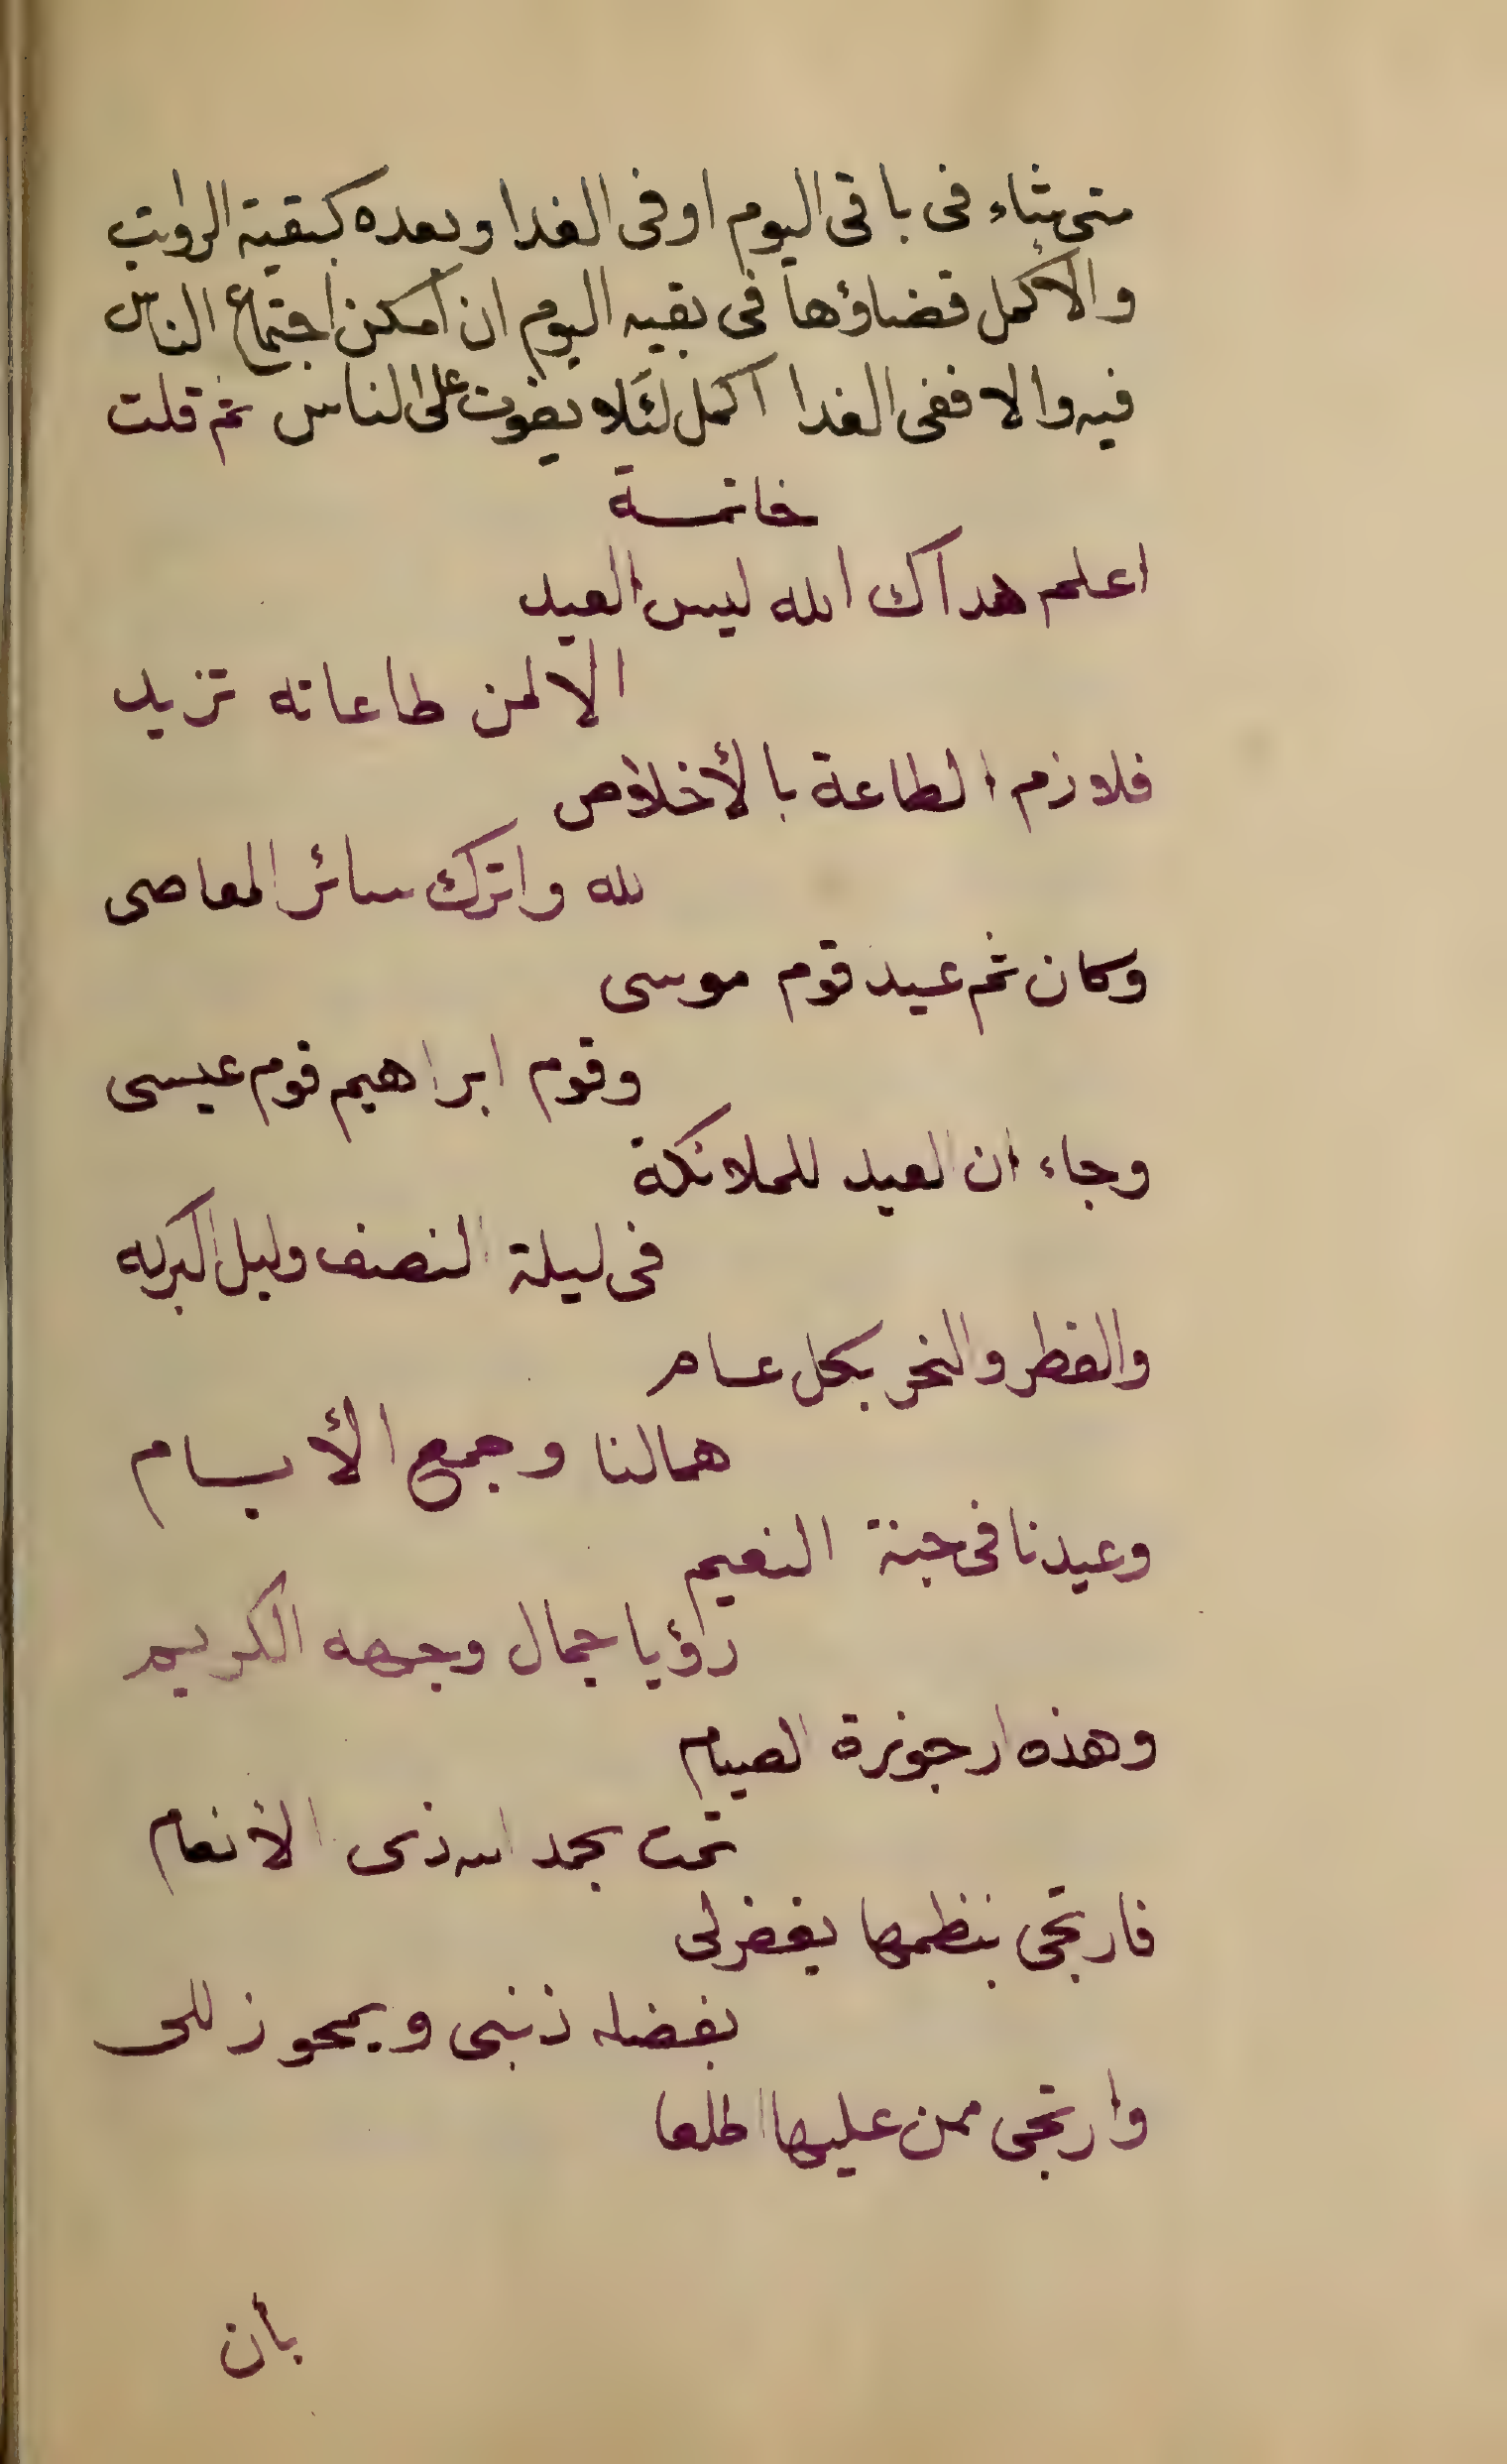 متى شاء فى باقى اليوم او فى الغدا وبعده كبقية الرواتب
والأكمل قضاؤها فى بقيه اليوم ان امكن اجتماع الناس
فيه والا ففى الغدا اكمل لئلا يفوت على الناس ثم قلت
خاتمة
اعلم هداك الله ليس العيد
الا لمن طاعاته تزيد
فلازم الطاعة بالأخلاص
لله واترك سائر المعاصى
وكان ثم عيد قوم موسى
وقوم ابراهيم قوم عيسى
وجاء ان العيد للملائكة
فى ليلة النصف وليل البركه
والفطر والنحر بكل عام
هما لنا وجمع الأيام
وعيدنا فى جنة النعيم
رؤيا جمال وجهه الكريم
وهذه ارجوزة الصيام
تمت بحمد الله ذى الأنعام
فارتجى بنظمها يغفر لى
بفضله ذنبى ويمحو زللى
وارتجى ممن عليها اطلعا
بأن